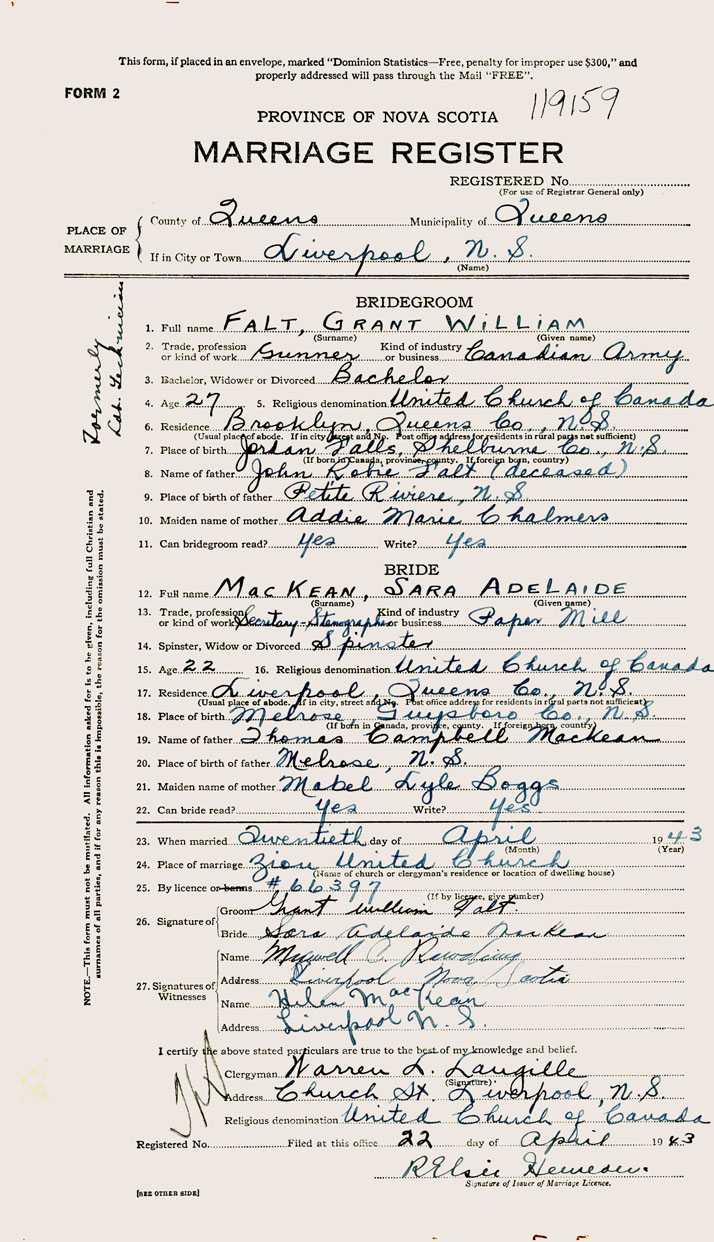 This form, if placed in an envelope, marked "Dominion Statistics—Free, penalty for improper use $300," and
properly addressed will pass through the Mail "FREE".
FORM 2
119159
PROVINCE OF NOVA SCOTIA
MARRIAGE REGISTER
REGISTERED No.
(For use of Registrar General only)
PLACE OF MARRIAGE
County of Queens Municipality of Queens
If in City or Town Liverpool, N. S.
(Name)
Formerly
Lab. Technician
BRIDEGROOM
1. Full name FALT, GRANT WILLIAM
(Surname) (Given name)
2. Trade, profession or kind of work Gunner Kind of industry or business Canadian Army
3. Bachelor, Widower or Divorced Bachelor
4. Age 27 5. Religious denomination United Church of Canada
6. Residence Brooklyn, Queens Co., N.S.
(Usual place of abode. If in city, street and No. Post office address for residents in rural parts not sufficient)
7. Place of birth Jordan Falls, Shelburne Co., N.S.
(If born in Canada, province, county. If foreign born, country)
8. Name of father John Robie Falt (deceased)
9. Place of birth of father Petite Riviere, N.S.
10. Maiden name of mother Addie Marie Chalmers
11. Can bridegroom read? yes Write? yes
BRIDE
12. Full name MacKEAN, SARA ADELAIDE
(Surname) (Given name)
13. Trade, profession or kind of work Secretary-Stenographer Kind of industry or business Paper Mill
14. Spinster, Widow or Divorced Spinster
15. Age 22 16. Religious denomination United Church of Canada
17. Residence Liverpool, Queens Co., N.S.
(Usual place of abode. If in city, street and No. Post office address for residents in rural parts not sufficient)
18. Place of birth Melrose, Guysboro Co., N.S.
(If born in Canada, province, county. If foreign born, country)
19. Name of father Thomas Campbell MacKean
20. Place of father Melrose, N.S.
21. Maiden name of mother Mabel Lyle Boggs
22. Can bride read? yes Write? yes
23. When married Twentieth day of April 1943
(Month) (Year)
24. Place of marriage Zion United Church
(Name of church or clergyman's residence or location of dwelling house)
25. By licence or banns # 66397
(If by licence, give number)
26. Signature of
Groom Grant William Falt.
Bride Sara Adelaide MacKean
27. Signatures of Witnesses
Name Maxwell C.
Address Liverpool Nova Scotia
Name Helen MacKean
Address Liverpool N. S.
I certify the above stated particulars are true to the best of my knowledge and belief.
Clergyman Warren L. Langille
(Signature)
Address Church St. Liverpool, N.S.
Religious denomination United Church of Canada
Registered No. Filed at this office 22 day of April 1943
R Elsie
Signature of Issuer of Marriage Licence.
[SEE OTHER SIDE]
NOTE.—This form must not be mutilated. All information asked for is to be given, including full Christian and
surnames of all parties, and if for any reason this is impossible, the reason for the omission must be stated.